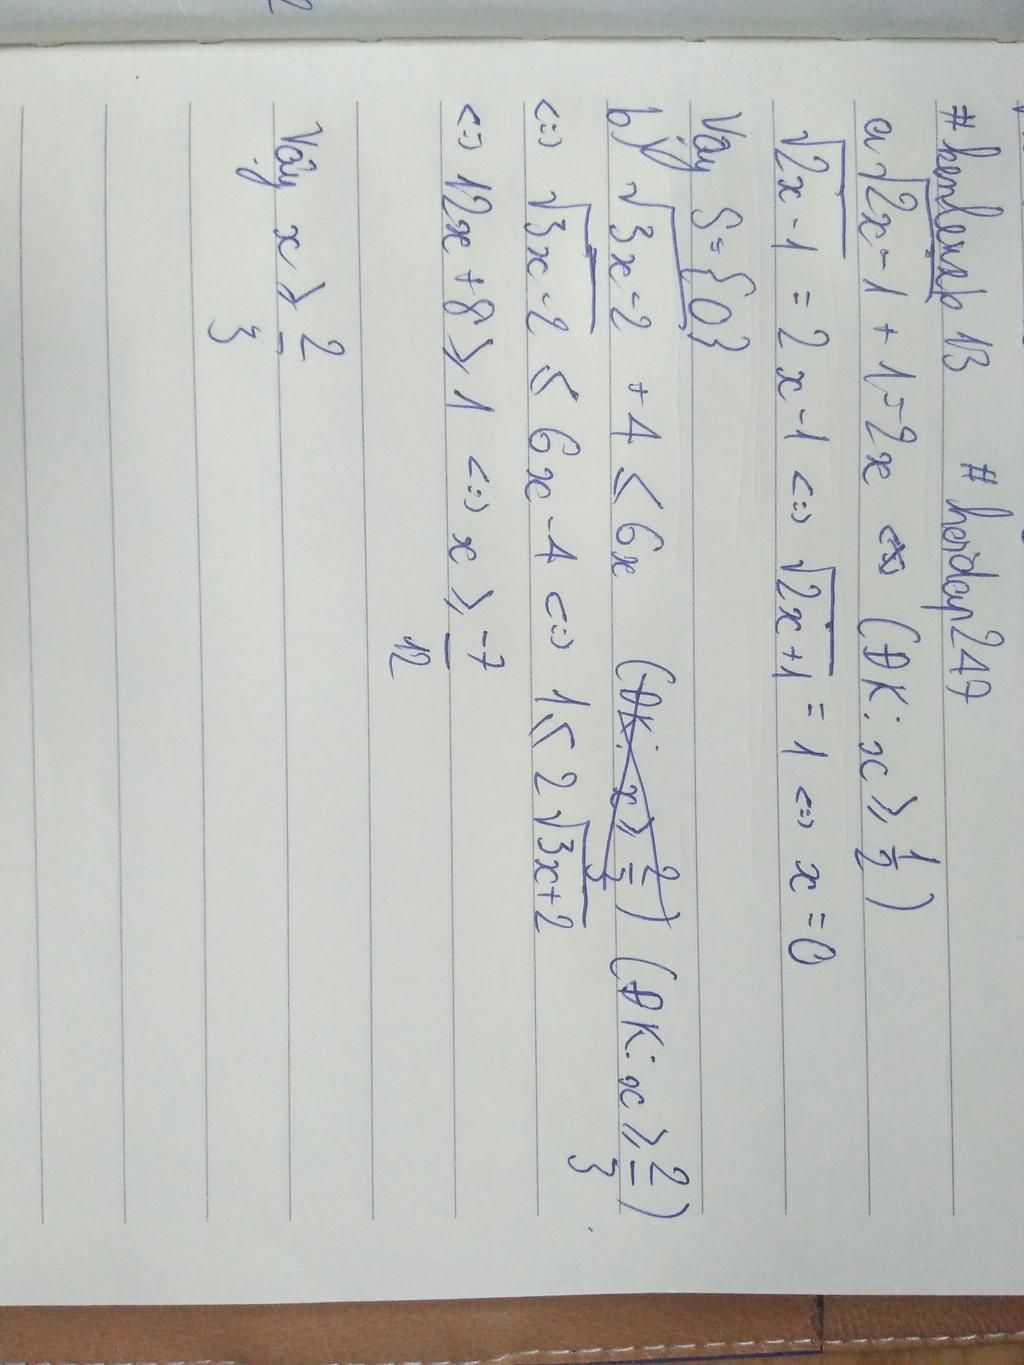 #kenlenxep 13 #hoidap247
a √2x-1 + 1 = 2x <=> (ĐK: x ≥ 1/2)
√2x-1 = 2x-1 <=> √2x+1 = 1 <=> x = 0
Vậy S = {0}
b) √3x-2 + 4 ≤ 6x (ĐK: x ≥ 2/3) (ĐK: x ≥ 2/3)
<=> √3x-2 ≤ 6x-4 <=> 1 ≤ 2√3x+2
<=> 12x + 8 ≥ 1 <=> x ≥ -7/12
Vậy x ≥ 2/3